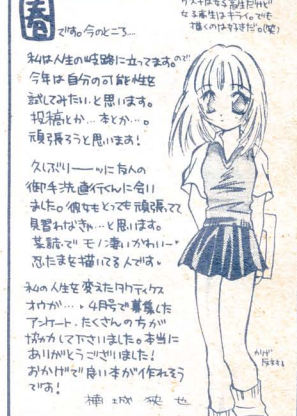 ラスナは女子高生だけど
女子高生はキライ。でも
描くのは好きだ。(笑)
春です。今のところ…。
私は人生の岐路に立ってます。ので
今年は自分の可能性を
試してみたい。と思います。
投稿とか…本とか…。
頑張ろうと思います!
久しぶりーーッに友人の
御手洗直行くんに会い
ました。彼女もとても頑張ってて
見習わなきゃ…と思います。
某読で モノ凄いかわいー
忍たまを描いてる人です。
私の人生を変えたタクティクス
オウガ…。4月号で募集した
アンケート、たくさんの方が
協力して下さいました。本当に
ありがとうございました!
おかげで良い本が作れそう
です!
かげ